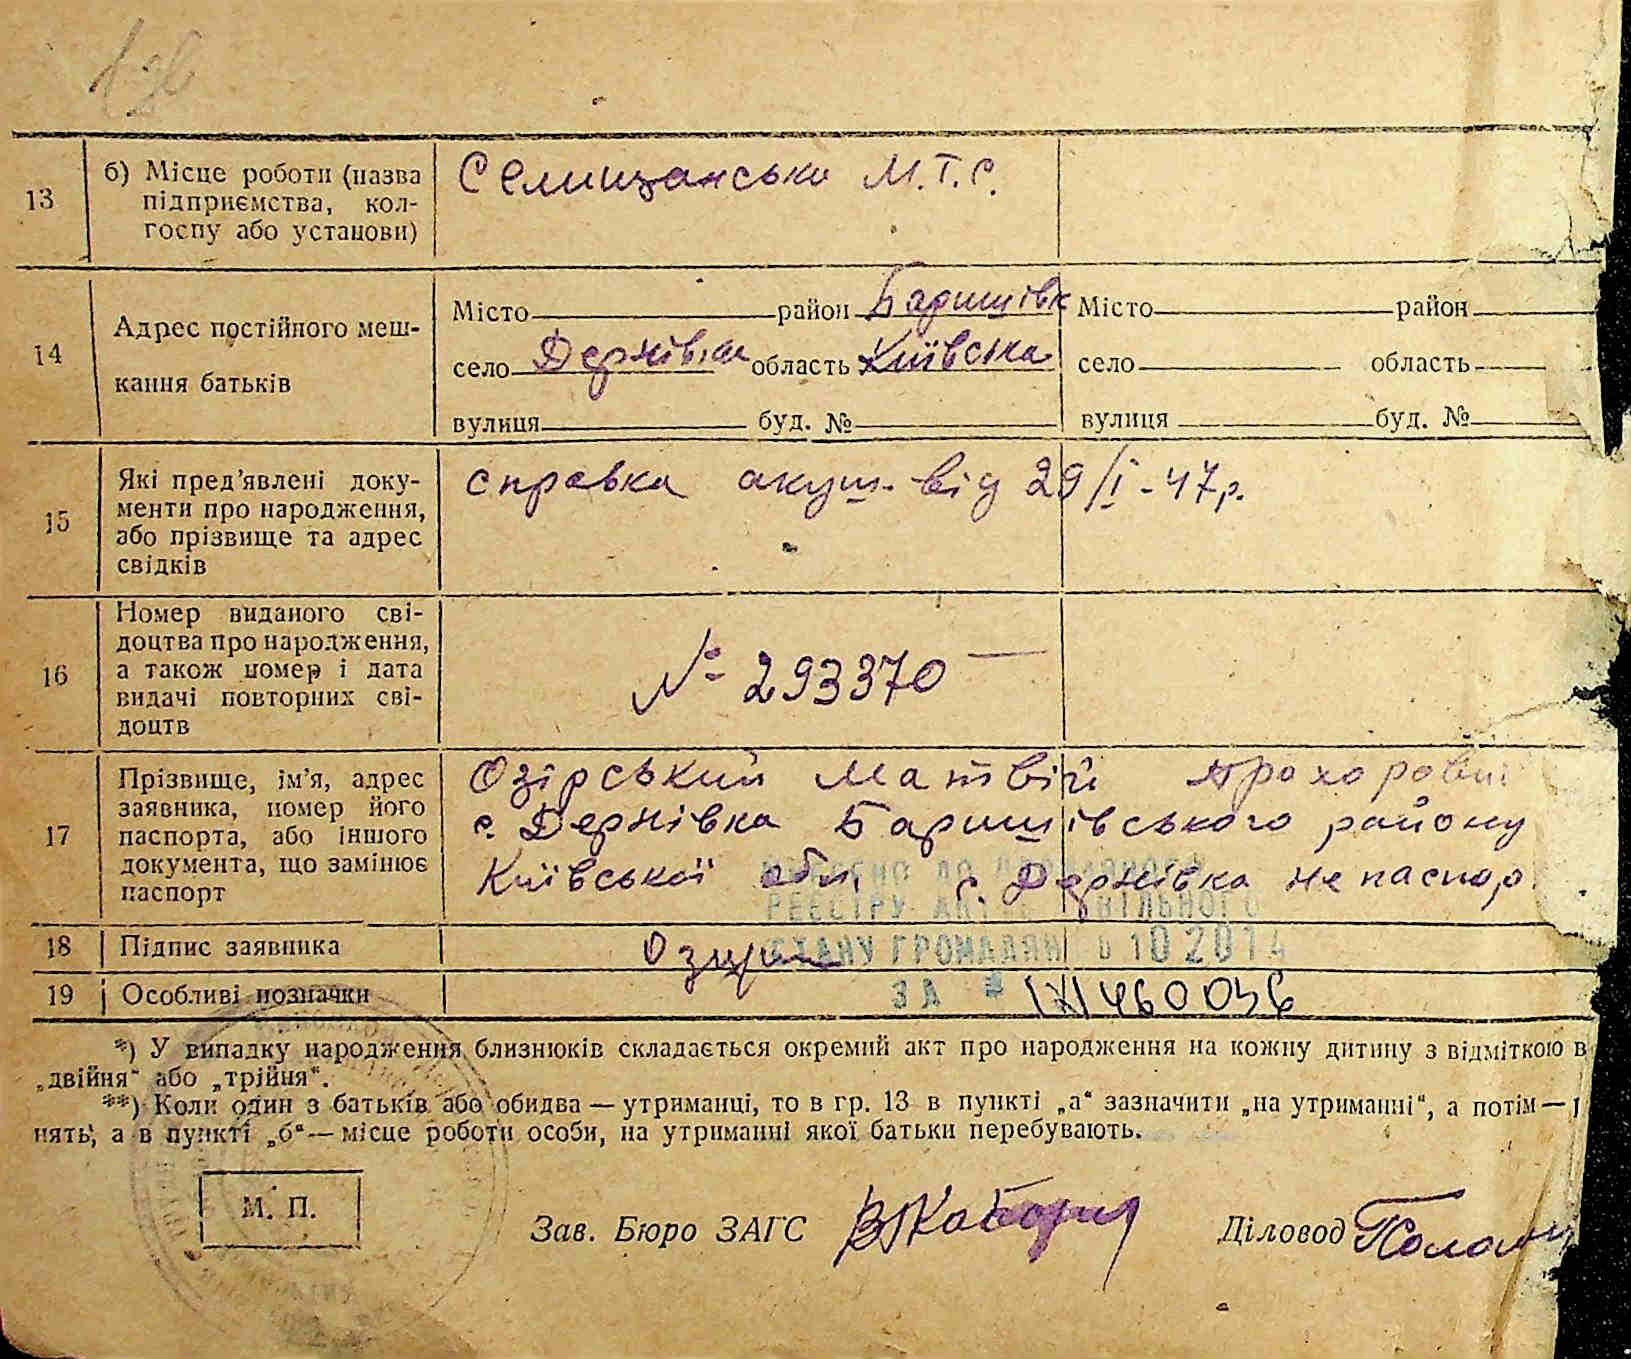 13
б) Місце роботи (назва
підприємства, кол-
госпу або установи)
Селищанська М.Т.С.
14
Адрес постійного меш-
кання батьків
Місто район Баришівк
село Дернівка область Київська
вулиця буд. №
Місто район
село область
вулиця буд. №
15
Які пред'явлені доку-
менти про народження,
або прізвище та адрес
свідків
справка акуш. від 29/I-47р.
16
Номер виданого сві-
доцтва про народження,
а також номер і дата
видачі повторних сві-
доцтв
№ 293370
17
Прізвище, ім'я, адрес
заявника, номер його
паспорта, або іншого
документа, що замінює
паспорт
Озірський Матвій Прохорович
с. Дернівка Баришівського району
Київської обл. с. Дернівка не паспор.
РЕЄСТРУ АКТІВ ЦИВІЛЬНОГО
18 Підпис заявника
СТАНУ ГРОМАДЯН 10 2014
19 Особливі позначки
ЗА №
*) У випадку народження близнюків складається окремий акт про народження на кожну дитину з відміткою в
„двійня" або „трійня".
**) Коли один з батьків або обидва — утриманці, то в гр. 13 в пункті „а" зазначити „на утриманні", а потім —
нять, а в пункті „б" — місце роботи особи, на утриманні якої батьки перебувають.
М. П.
Зав. Бюро ЗАГС
Діловод